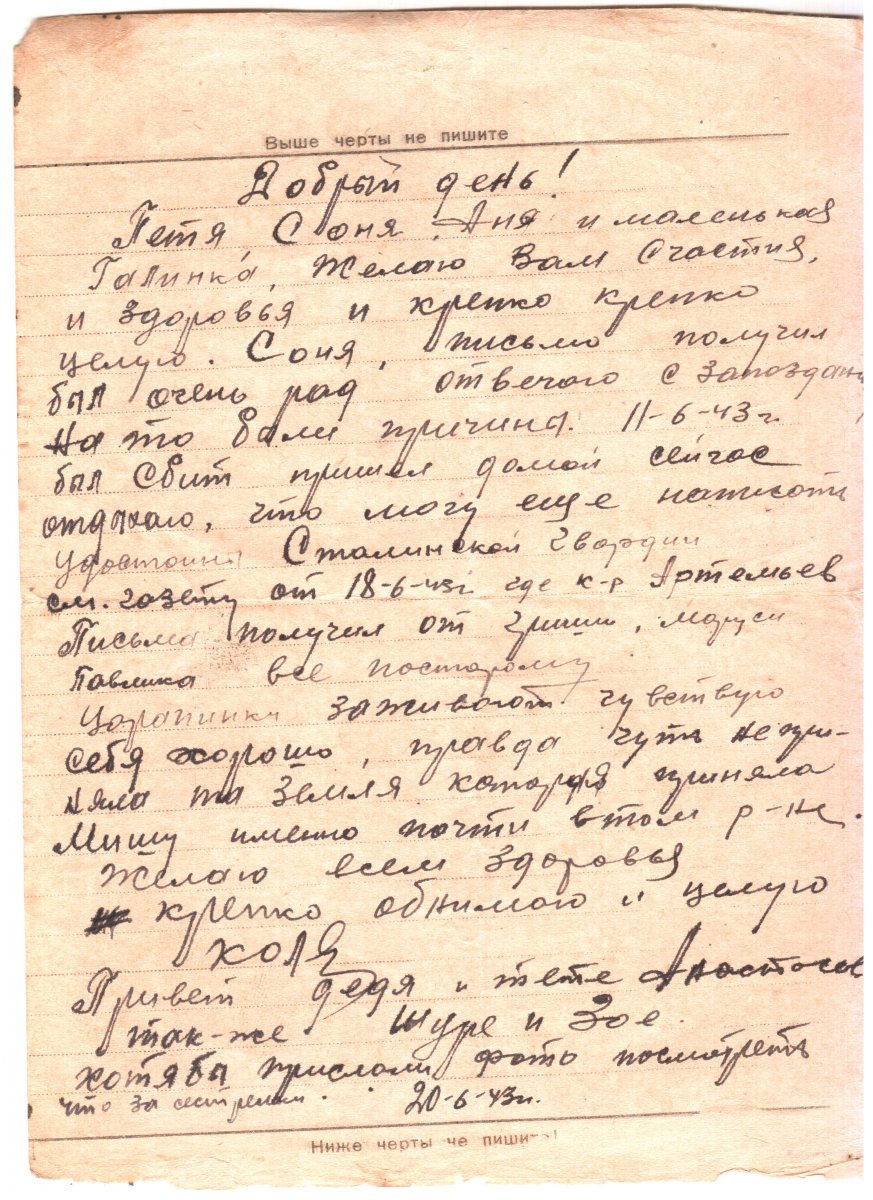 Выше черты не пишите
Добрый день!
Петя, Соня, Аня и маленькая
Галинка, Желаю Вам Счастия,
и здоровья и крепко крепко
целую. Соня, письмо получил
был очень рад отвечаю с запоздан
На то были причины. 11-6-43 г.
был Сбит пришел домой сейчас
отдыхаю, что могу еще написать
Удостоин Сталинской Гвардии
см. газету от 18-6-43г где к-р Артемьев
Письма получил от Гриши, Маруси
Павлика все постарому
Царапинки заживают чувствую
себя хорошо, правда чуть не при-
няла та Земля которая приняла
Мишу именно почти втом р-не.
Желаю всем здоровья
крепко обнимаю и целую
Коля
Привет дедя и тете
так-же Шуре и Зое.
хотяба прислали фото посмотреть
что за сестрёнки. 20-6-43г.
Ниже черты не пишите!